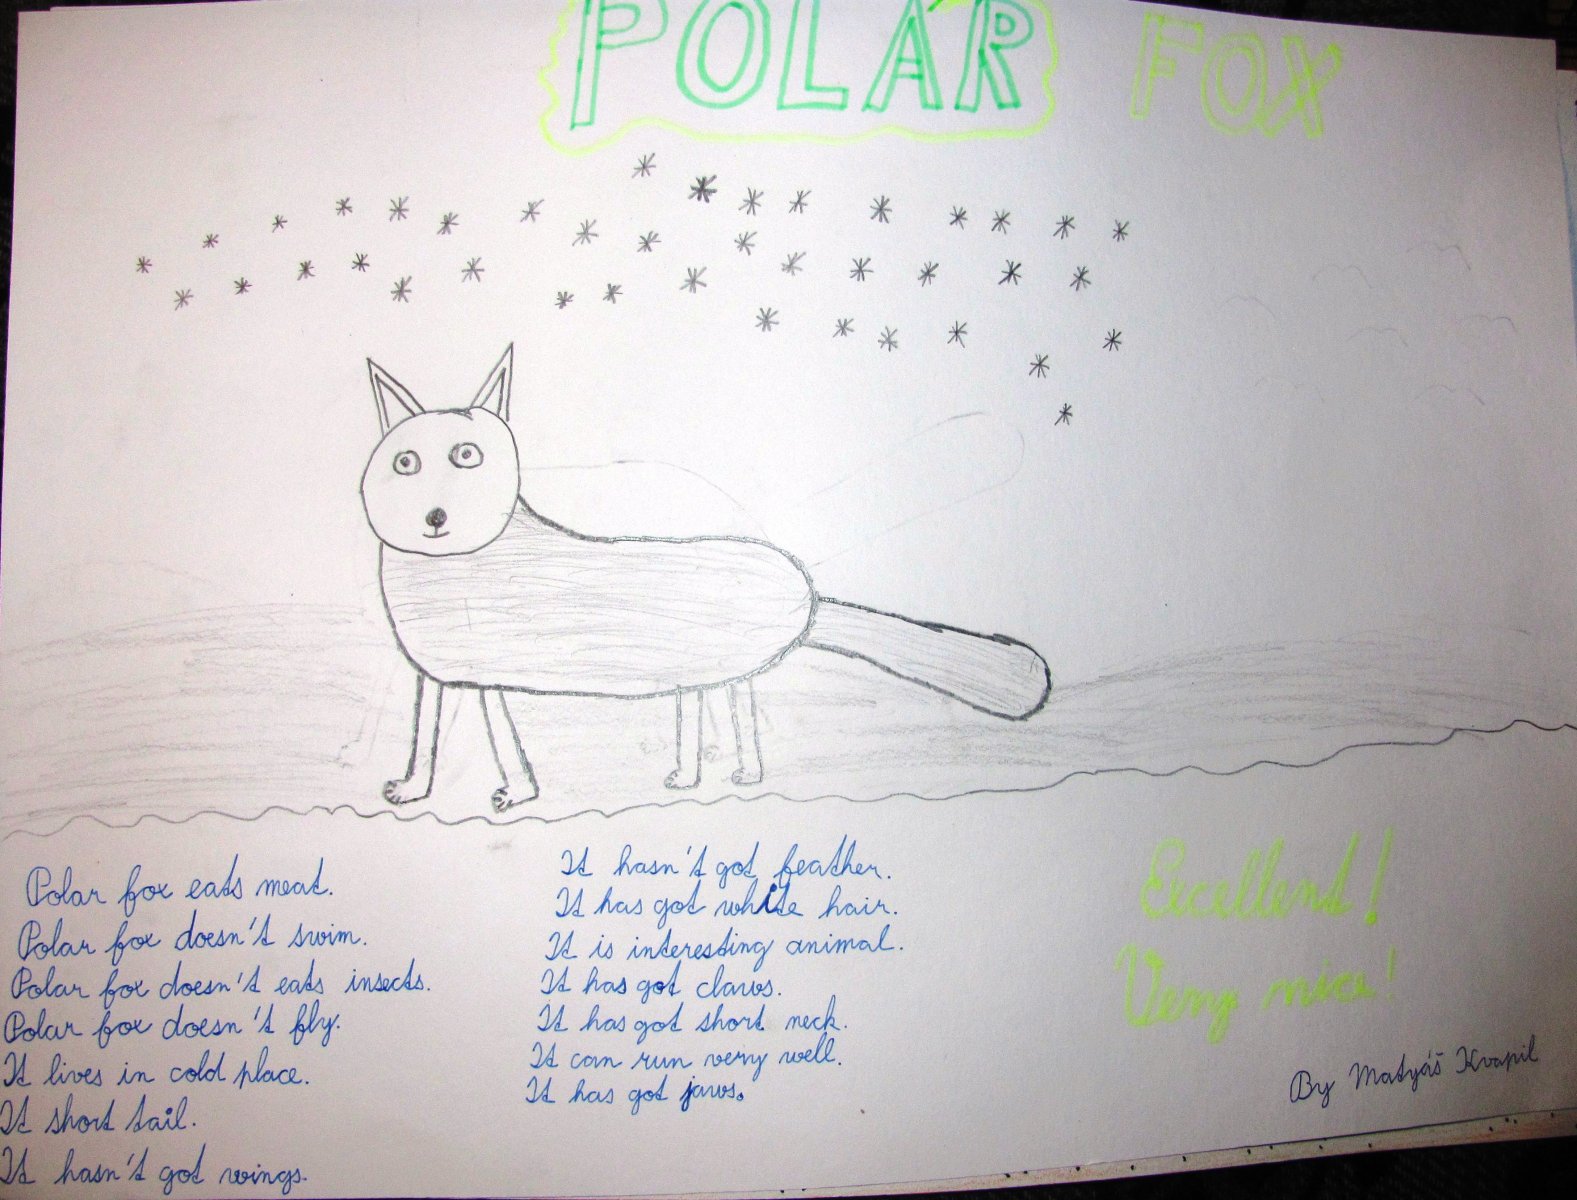 POLÁR FOX
Polar fox eats meat.
Polar fox doesn't swim.
Polar fox doesn't eats insects.
Polar fox doesn't fly.
It lives in cold place.
It short tail.
It hasn't got wings.
It hasn't got feather.
It has got white hair.
It is interesting animal.
It has got claws.
It has got short neck.
It can run very well.
It has got jaws.
Excellent!
Very nice!
By Matyáš Kvapil